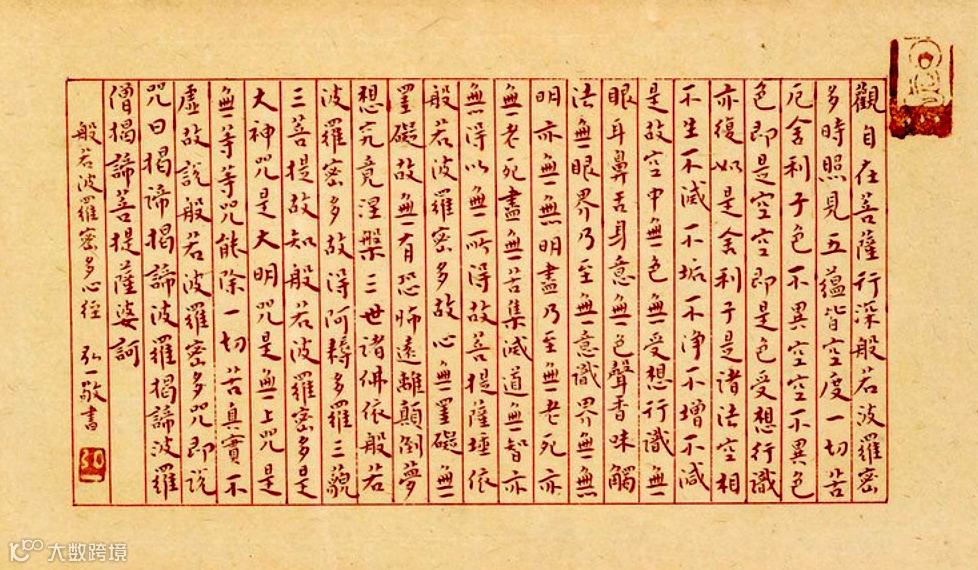 觀自在菩薩行深般若波羅密
多時照見五蘊皆空度一切苦
厄舍利子色不異空空不異色
色即是空空即是色受想行識
亦復如是舍利子是諸法空相
不生不滅不垢不淨不增不減
是故空中無色無受想行識無
眼耳鼻舌身意無色聲香味觸
法無眼界乃至無意識界無無
明亦無無明盡乃至無老死亦
無老死盡無苦集滅道無智亦
無得以無所得故菩提薩埵依
般若波羅密多故心無罣礙無
罣礙故無有恐怖遠離顛倒夢
想究竟涅槃三世諸佛依般若
波羅密多故得阿耨多羅三藐
三菩提故知般若波羅密多是
大神咒是大明咒是無上咒是
無等等咒能除一切苦真實不
虛故說般若波羅密多咒即說
咒曰揭諦揭諦波羅揭諦波羅
僧揭諦菩提薩婆訶
般若波羅密多心經 弘一敬書
大数跨境